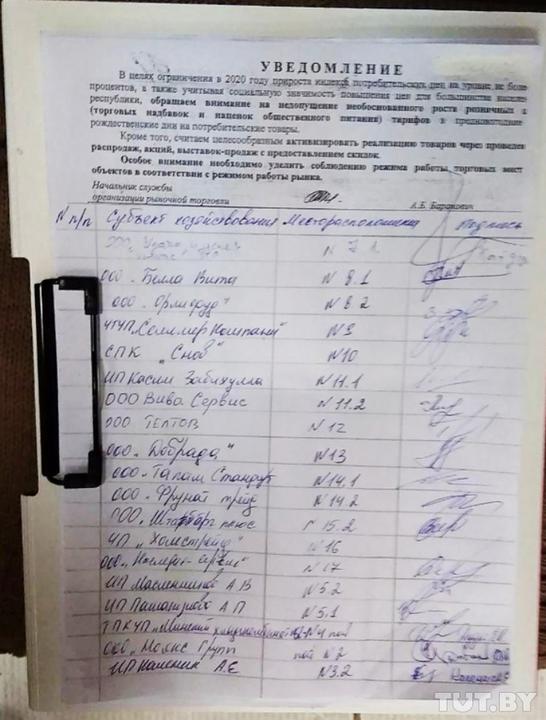 УВЕДОМЛЕНИЕ
В целях ограничения в 2020 году прироста индекса потребительских цен на уровне не боле
процентов, а также учитывая социальную значимость повышения цен для большинства населе
республики, обращаем внимание на недопущение необоснованного роста розничных ц
(торговых надбавок и наценок общественного питания) тарифов в предновогодние
рождественские дни на потребительские товары.
Кроме того, считаем целесообразным активизировать реализацию товаров через проведен
распродаж, акций, выставок-продаж с предоставлением скидок.
Особое внимание необходимо уделить соблюдению режима работы, торговых мест
объектов в соответствии с режимом работы рынка.
Начальник службы
организации рыночной торговли А.Б. Баранович
N п/п Субъект хозяйствования Месторасположение Подпись
ООО N 7.1
ООО "Белла Вита N 8.1
ООО "Орлифруд" N 8.2
ЧТУП "Селлмер Компани" N9
СПК "Снов" N10
ИП Касми Забихулла N 11.1
ООО Вива Сервис N 11.2
ООО ТЕПТОВ N 12
ООО "Добрада" N13
ООО "Тапам Стандут N14.1
ООО "Фрунат трейд N 14.2
ООО "плюс 15.2
ЧП "Холстрейд" N16
ООО сервис" N17
ИП Масленников А В N5.2
ИП А П N5.1
ТПКУП "Минский N4 пав
ООО "Молкс Групп пав N2
ИП Каленик А.Е N3.2
TUT.BY